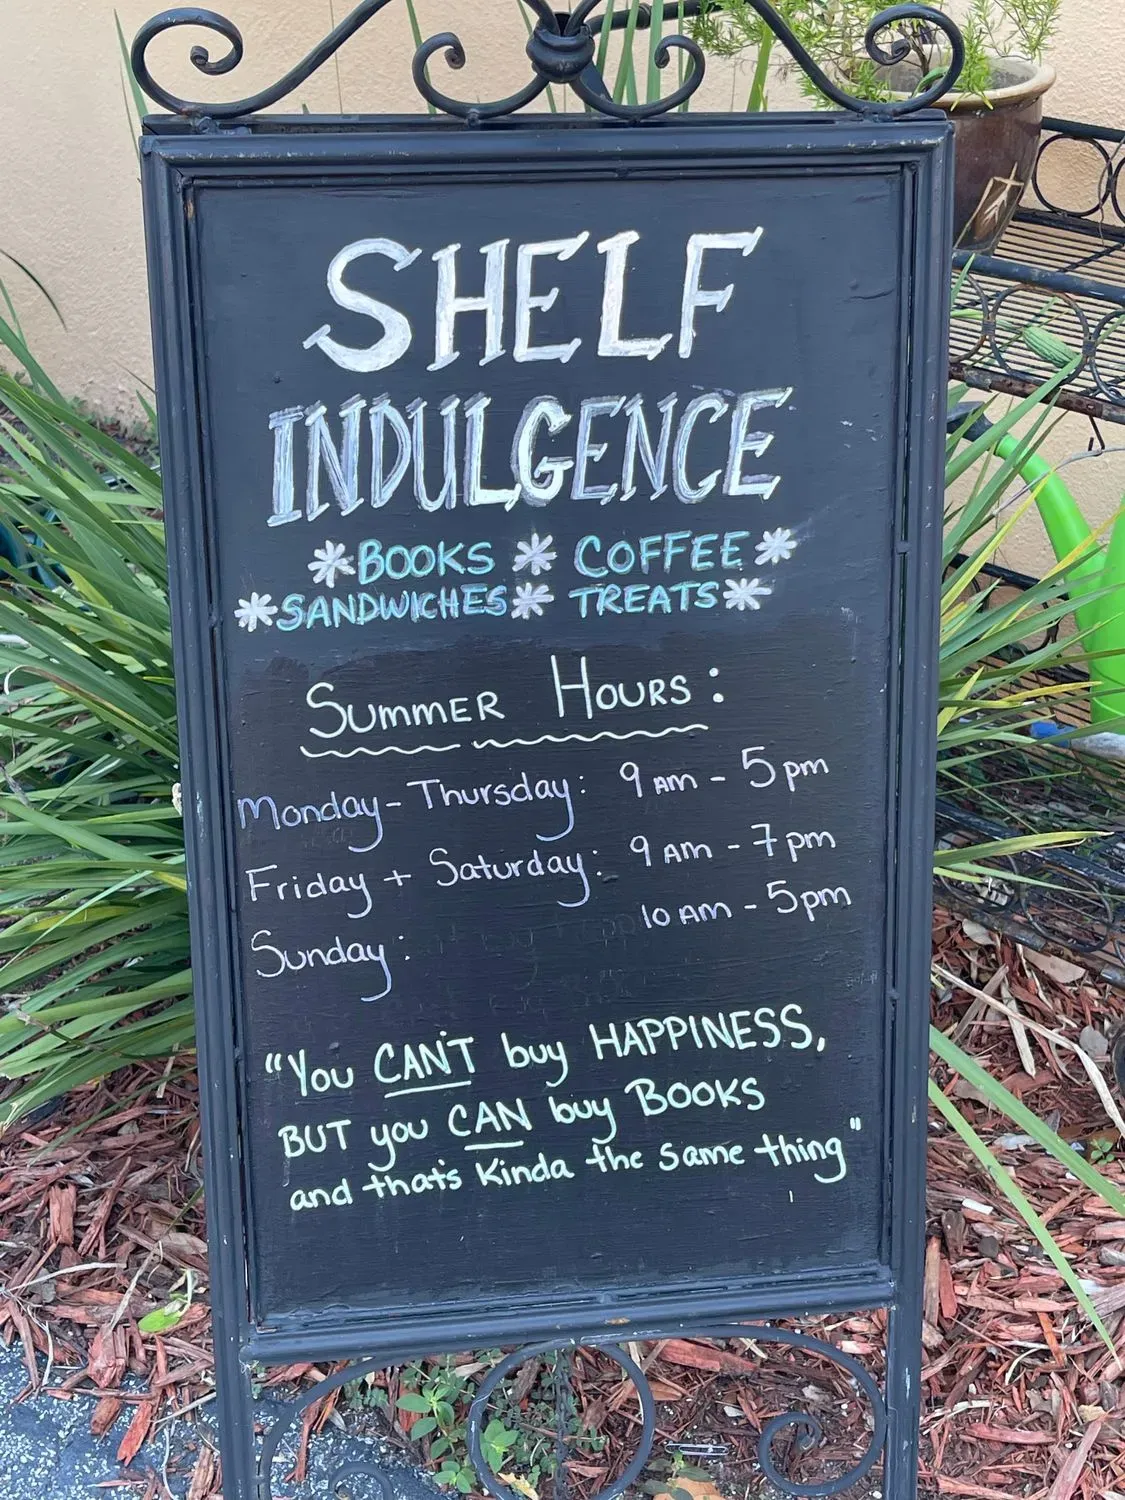 SHELF
INDULGENCE
*BOOKS * COFFEE*
*SANDWICHES* TREATS*
SUMMER HOURS:
Monday-Thursday: 9 AM - 5 pm
Friday + Saturday: 9 AM - 7 pm
Sunday: 10 AM - 5pm
"You CAN'T buy HAPPINESS,
BUT you CAN buy BOOKS
and that's kinda the same thing"